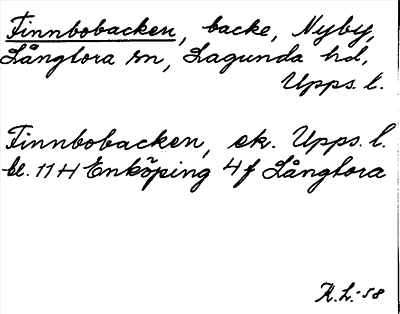 Finnbobacken, backe, Nyby,
Långtora sn, Lagunda hd,
Upps. l.
Finnbobacken, ek. Upps. l.
bl. 11 H Enköping 4 f Långtora
K.L.-58